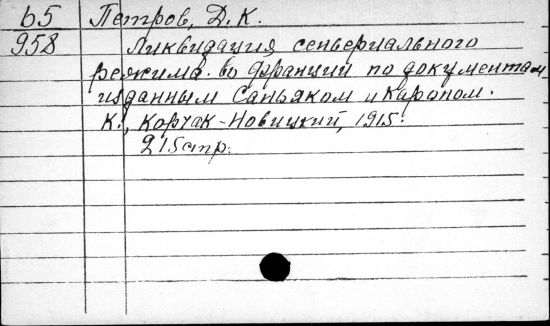 b5 Петров, Д.К.
958 Ликвидация сеньериального
режима во Франции по документам
изданным Саньяком и Кароном.
К., Корчак-Новицкий, 1915.
215 стр.